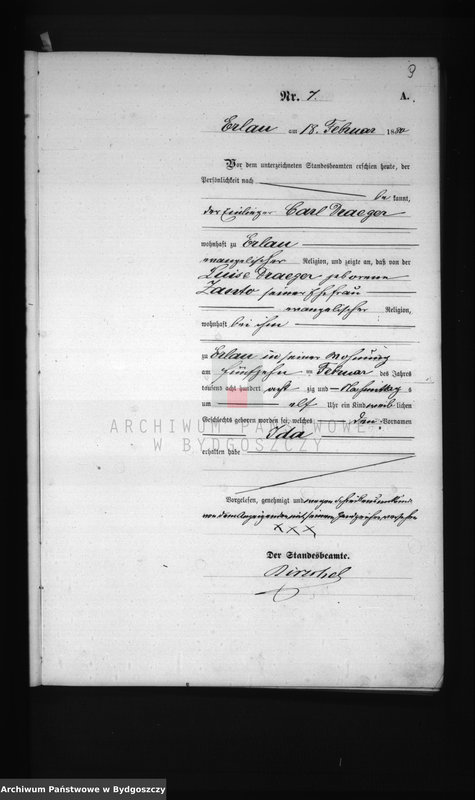 9
Nr. 7. A.
Erlau am 18. Februar 1880
Vor dem unterzeichneten Standesbeamten erschien heute, der
Persönlichkeit nach
be kannt,
der Einlieger Carl Draeger
wohnhaft zu Erlau
evangelischer Religion, und zeigte an, daß von der
Luise Draeger geborene
Zanto seiner Ehefrau
evangelischer Religion,
wohnhaft bei ihm
zu Erlau in seiner Wohnung
am fünfzehn ten Februar des Jahres
tausend acht hundert acht zig und Nachmittag s
um elf Uhr ein Kind weib lichen
Geschlechts geboren worden sei, welches den Vornamen
Ida
erhalten habe
ARCHIWUM PAŃSTWOWE
W BYDGOSZCZY
Vorgelesen, genehmigt und wegen Schreibensunkunde
von dem Anzeigenden mit seinem Handzeichen versehen
XXX
Der Standesbeamte.
Archiwum Państwowe w Bydgoszczy